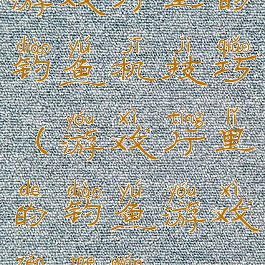 diào yú jī jì qiǎo
钓鱼机技巧
yóu xì tīng lǐ
（游戏厅里
de diào yú yóu xì
的钓鱼游戏